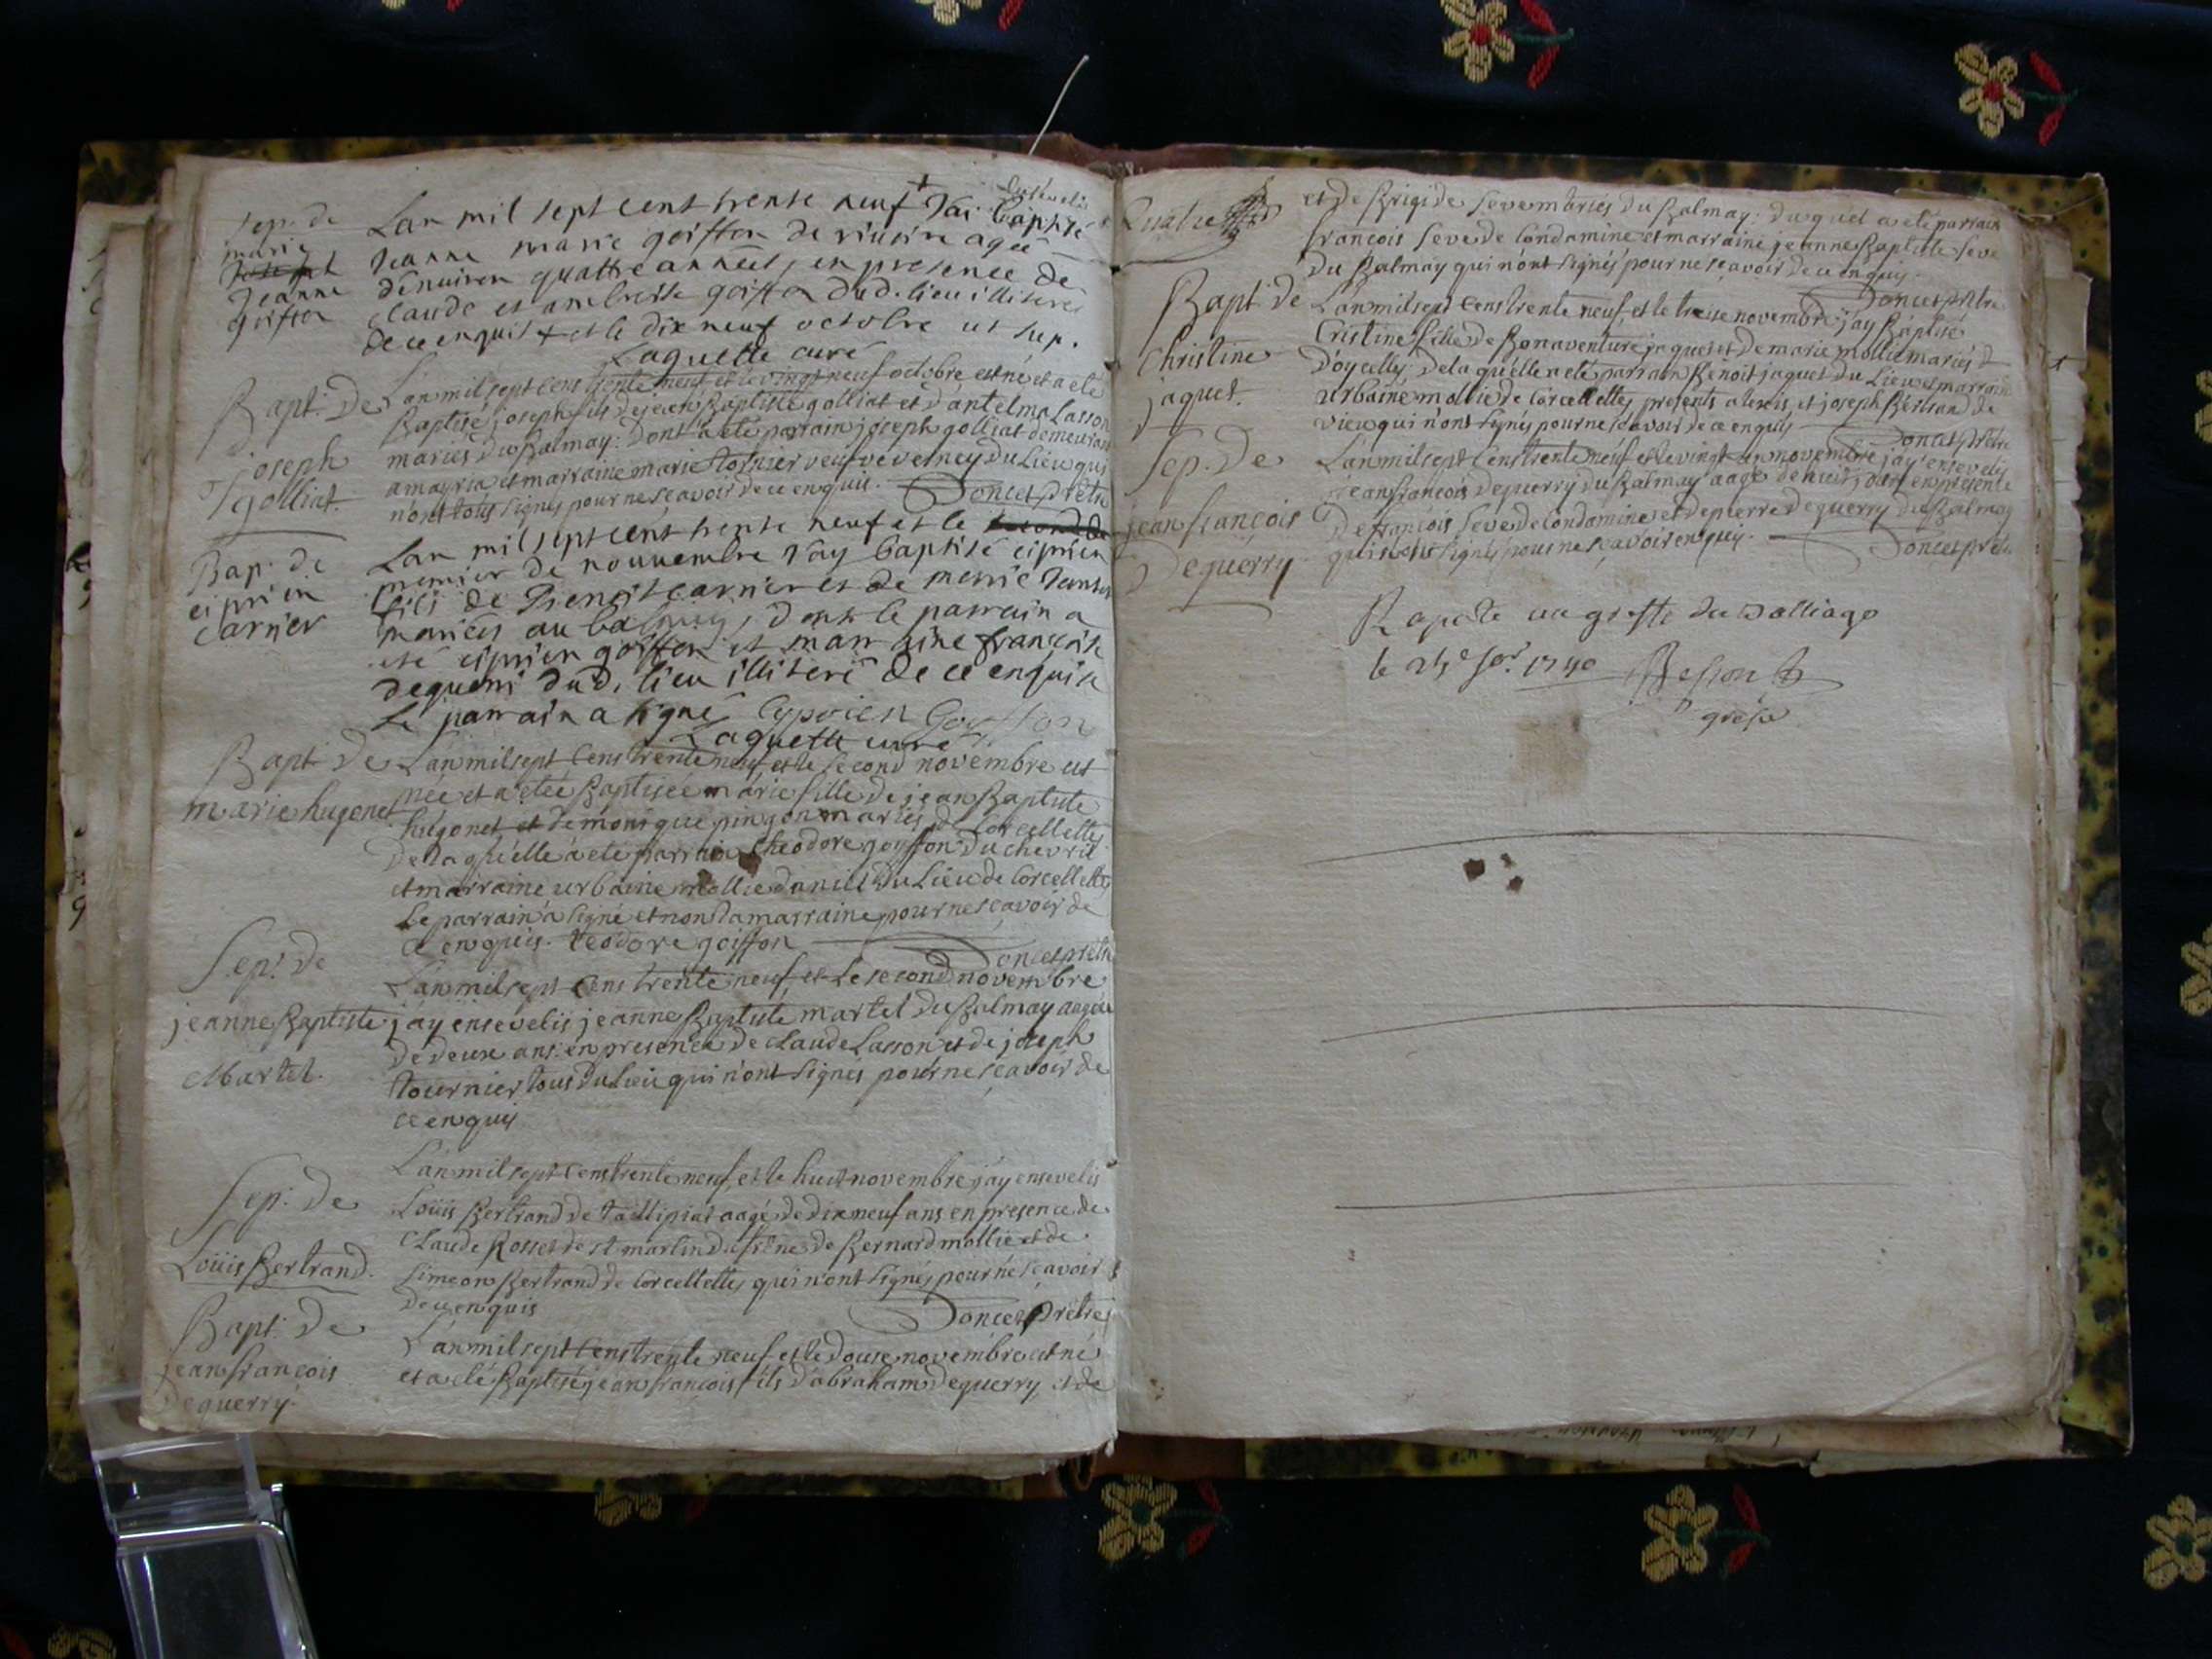 Sep. de
marie
Jeanne
goiffon
Lan mil sept cent trente neuf + Jai baptisé
Jeanne marie goiffon de viusin agée
denuiron quattre années, en presence de
claude et ambroise goiffon dud. lieu illiterés
de ce enquis + et le dix neuf octobre ut sup.
Laguette curé
Bapt. De
joseph
golliat.
L'an mil sept cens trente neuf et le vingt neuf octobre est né et a eté
Baptisé joseph fils de jean Baptiste golliat et d'antelma Lasson
mariés du Balmay: dont a eté parrain joseph golliat demeurant
a mayria et marraine marie tornier veufve verney du Lieu qui
n'ont tous signés pour ne scavoir de ce enquis. Doncet prêtre
Bap. de
ciprien
carrier
Lan mil sept cent trente neuf et le
premier de nouuembre J'ay baptisé ciprien
fils de Benoist carrier et de marie
mariés au balmay, dont le parrain a
eté ciprien goiffon et marraine françoise
dequeri dud. lieu illiteré de ce enquise
Le parrain a signé Cyprien Goyffon
Laguette curé
Bapt. De
marie hugonet
L'an mil sept cens trente neuf et le second novembre est
née et a etée Baptisée marie fille de jean Baptiste
hugonet et de monique pingon mariés de Corcellettes
De laquelle a eté parrain theodore goyffon du chevril
et marraine urbaine mollie du Lieu de Corcellettes
Le parrain a signé et non la marraine pour ne scavoir de
ce enquis. teodore goiffon Doncet prêtre
Sep. De
jeanne Baptiste
Martel.
L'an mil sept cens trente neuf et le second novembre
j'ay ensevelis jeanne Baptiste martel du Balmay aagée
De deux ans en presence de Claude Lasson et de joseph
tournier tous du Lieu qui n'ont signés pour ne scavoir de
ce enquis
Sep. De
Loüis Bertrand.
L'an mil sept cens trente neuf et le huit novembre j'ay ensevelis
Loüis Bertrand de taillipiat aagé de dix neuf ans en presence de
Claude Rosset de st martin du frêne de Bernard mollie et de
Simeon Bertrand de Corcellettes qui n'ont signés pour ne scavoir
de ce enquis Doncet Prêtre
Bapt. De
jean françois
Dequerry.
L'an mil sept cens trente neuf et le douse novembre est né
et a eté Baptisé jean françois fils d'abraham Dequerry et de
Quatre
et de Brigide Seve mbriés du Balmay: duquel a eté parrain
françois Seve de Condamine et marraine jeanne Baptiste Seve
Du Balmay qui n'ont signés pour ne scavoir de ce enquis.
Doncet prêtre
Bapt. de
Christine
jaquet.
L'an mil sept cens trente neuf et le treise novembre j'ay Baptisé
Cristine fille de Bonaventure jaquet et de marie mollie mariés
D'oyselly: de laquelle a eté parrain Benoit jaquet du Lieu et marraine
urbaine mollie de Corcellettes presents alexis et joseph Bertrand de
vieu qui n'ont signés pour ne scavoir de ce enquis
Doncet prêtre
Sep. De
jean françois
Dequerry
L'an mil sept cens trente neuf et le vingt un novembre j'ay ensevelis
jean françois Dequerry du Balmay aagé de neuf jours en presence
De françois Seve de Condamine et de pierre Dequerry du Balmay
qui n'ont signés pour ne scavoir enquis. Doncet prêtre
Raporté au greffe du Balliage
le 1740 Besson